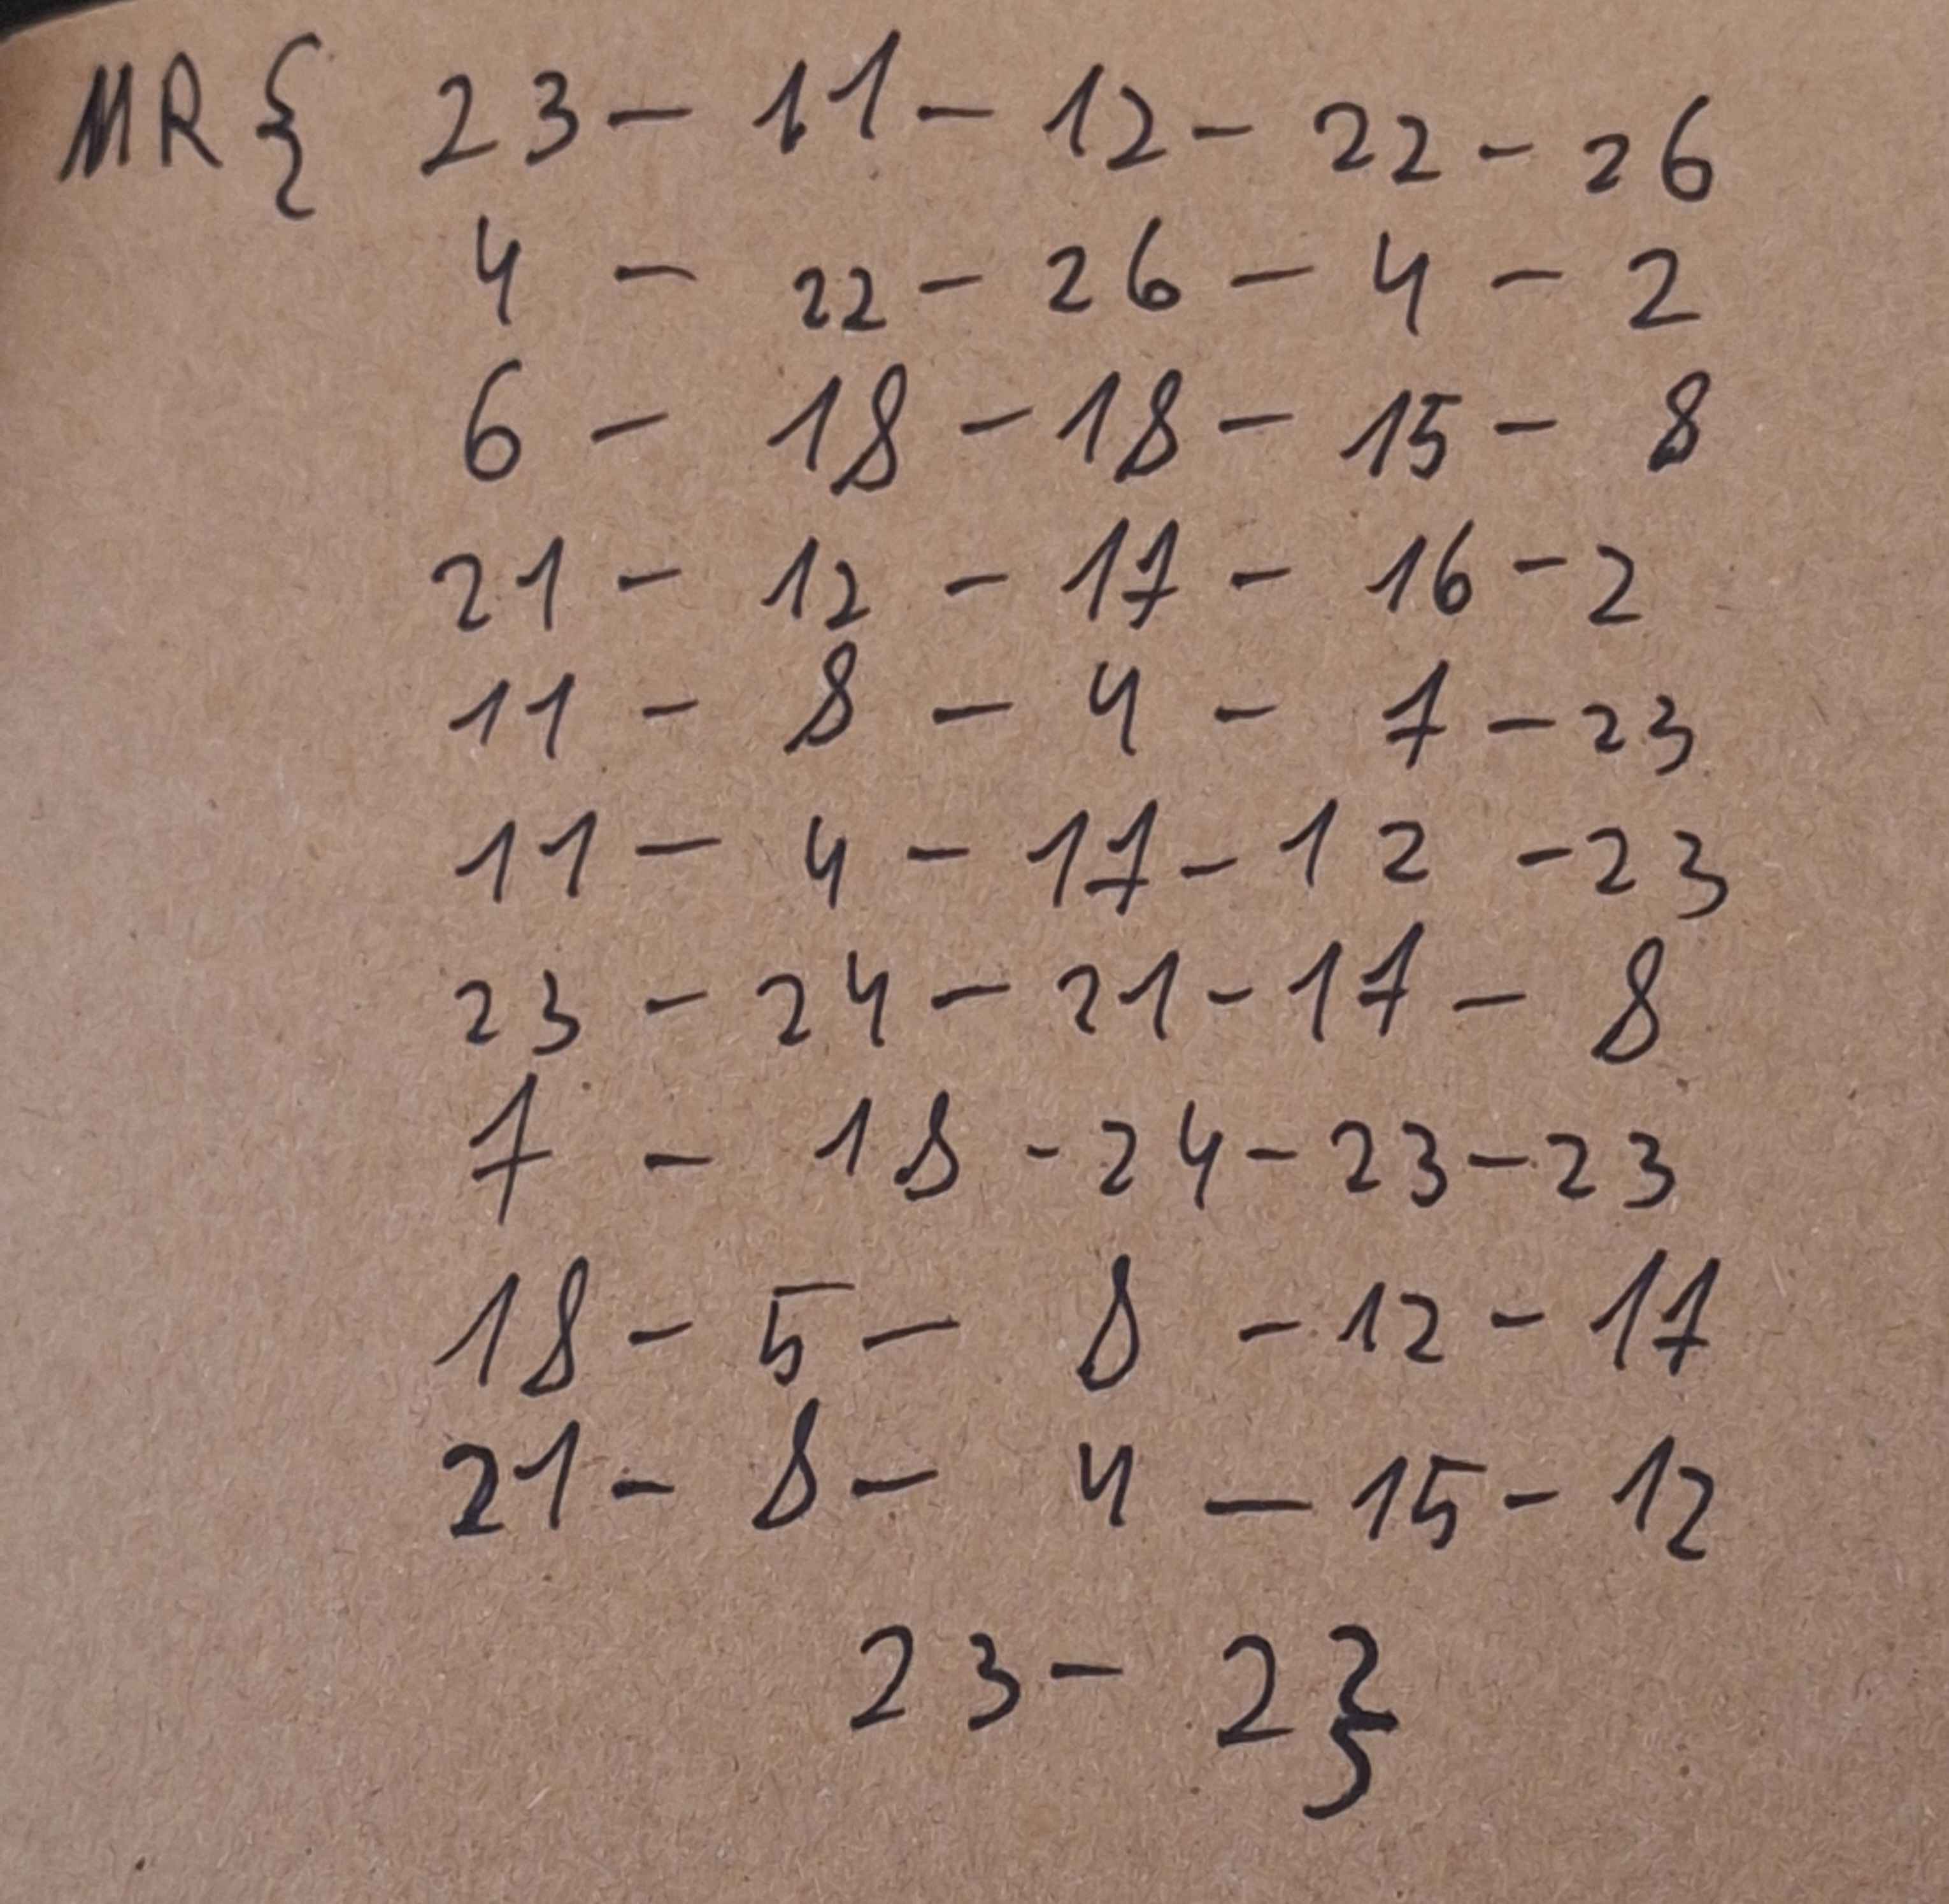 MR{ 23 - 11 - 12 - 22 - 26
4 - 22 - 26 - 4 - 2
6 - 18 - 18 - 15 - 8
21 - 12 - 17 - 16 - 2
11 - 8 - 4 - 7 - 23
11 - 4 - 17 - 12 - 23
23 - 24 - 21 - 17 - 8
7 - 18 - 24 - 23 - 23
18 - 5 - 8 - 12 - 17
21 - 8 - 4 - 15 - 12
23 - 2}